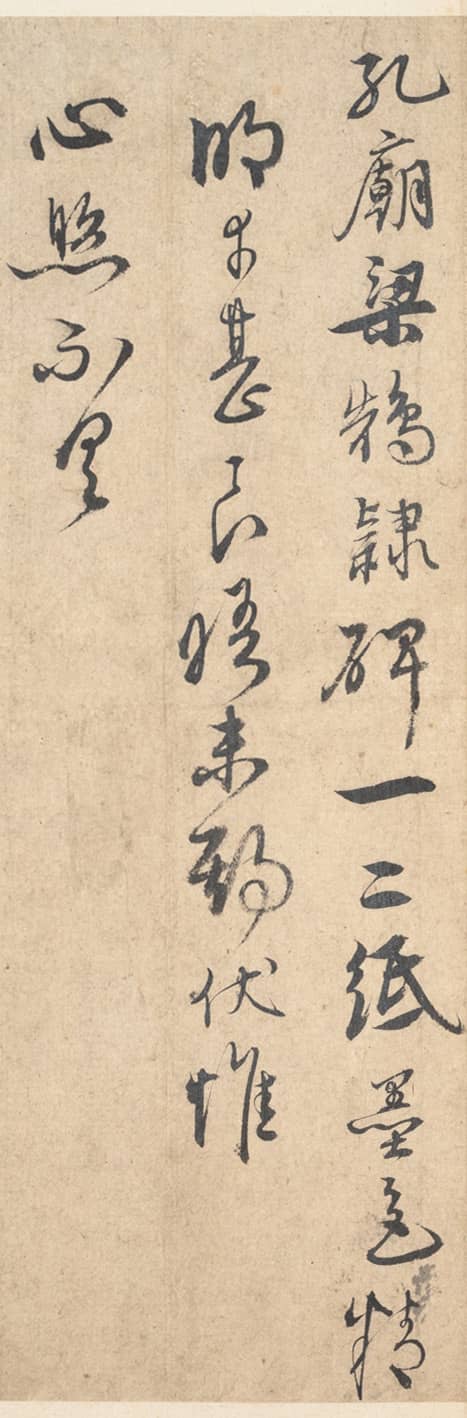 孔廟梁鵠隸碑一二紙墨色精
明幸甚良晤未期伏惟
心照不具